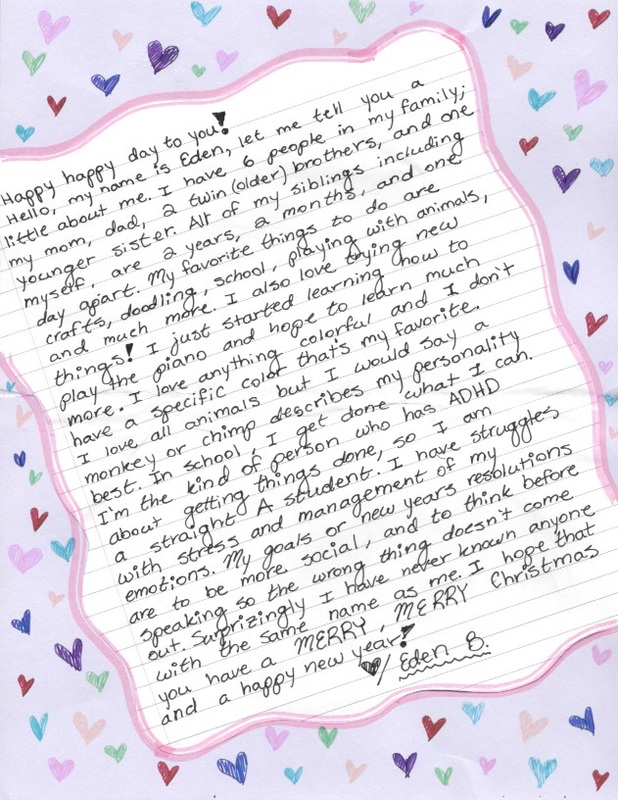 Happy happy day to you!
Hello, my name is Eden, let me tell you a
little about me. I have 6 people in my family;
my mom, dad, 2 twin (older) brothers, and one
younger sister. All of my siblings including
myself, are 2 years, 2 months, and one
day apart. My favorite things to do are
crafts, doodling, school, playing with animals,
and much more. I also love trying new
things! I just started learning how to
play the piano and hope to learn much
more. I love anything colorful and I don't
have a specific color that's my favorite.
I love all animals but I would say a
monkey or chimp describes my personality
best. In school, I get done what I can.
I'm the kind of person who has ADHD
about getting things done, so I am
a straight A student. I have struggles
with stress and management of my
emotions. My goals or new years resolutions
are to be more social, and to think before
speaking so the wrong thing doesn't come
out. Surprizingly I have never known anyone
with the same name as me. I hope that
you have a MERRY, MERRY Christmas
and a happy new year!
/ Eden B.